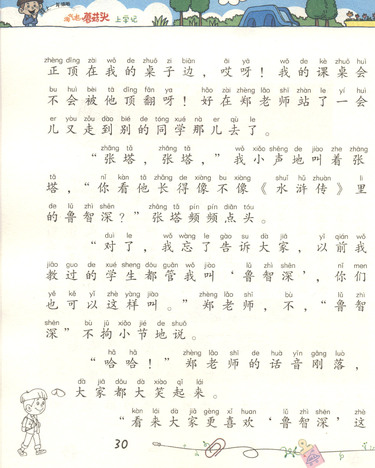 淘气包蘑菇头 上学记
zhèng dǐng zài wǒ de zhuō zi biān āi yā wǒ de kè zhuō huì
正顶在我的桌子边，哎呀！我的课桌会
bú huì bèi tā dǐng fān ya hǎo zài zhèng lǎo shī zhàn le yí huì
不会被他顶翻呀！好在郑老师站了一会
er yòu zǒu dào bié de tóng xué nàr qù le
儿又走到别的同学那儿去了。
zhāng tǎ zhāng tǎ wǒ xiǎo shēng de jiào zhe zhāng
“张塔，张塔，”我小声地叫着张
tǎ nǐ kàn tā zhǎng de xiàng bu xiàng shuǐ hǔ zhuàn lǐ
塔，“你看他长得像不像《水浒传》里
de lǔ zhì shēn zhāng tǎ pín pín diǎn tóu
的鲁智深？”张塔频频点头。
duì le wǒ wàng le gào su dà jiā yǐ qián wǒ
“对了，我忘了告诉大家，以前我
jiāo guo de xué sheng dōu guǎn wǒ jiào lǔ zhì shēn nǐ men
教过的学生都管我叫‘鲁智深’，你们
yě kě yǐ zhè yàng jiào zhèng lǎo shī bù lǔ zhì
也可以这样叫。”郑老师，不，“鲁智
shēn bù jū xiǎo jié de shuō
深”不拘小节地说。
hā hā zhèng lǎo shī de huà yīn gāng luò
“哈哈！”郑老师的话音刚落，
dà jiā dōu dà xiào qǐ lái
大家都大笑起来。
kàn lái dà jiā gèng xǐ huan lǔ zhì shēn zhè
“看来大家更喜欢‘鲁智深’这
30